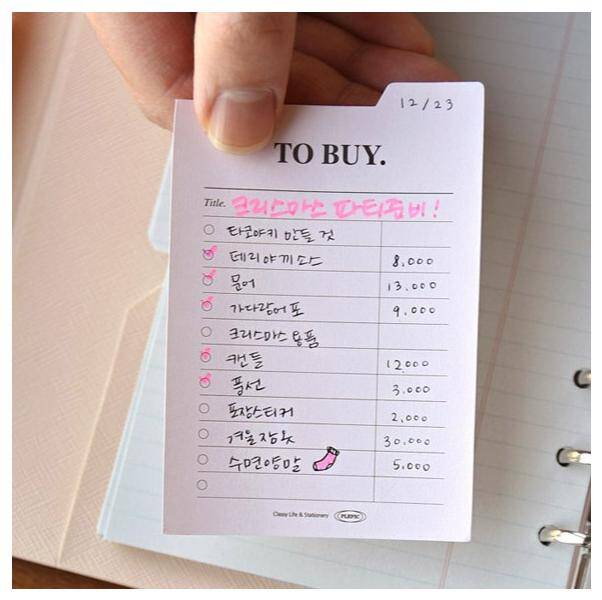 12/23
TO BUY.
Title. 크리스마스 파티준비!
타코야키 만들 것
데리야끼소스 8,000
문어 13,000
가다랑어포 9,000
크리스마스 용품
캔들 12,000
풍선 3,000
포장스티커 2,000
겨울잠옷 30,000
수면양말 5,000
Classy Life & Stationery PLEPIC